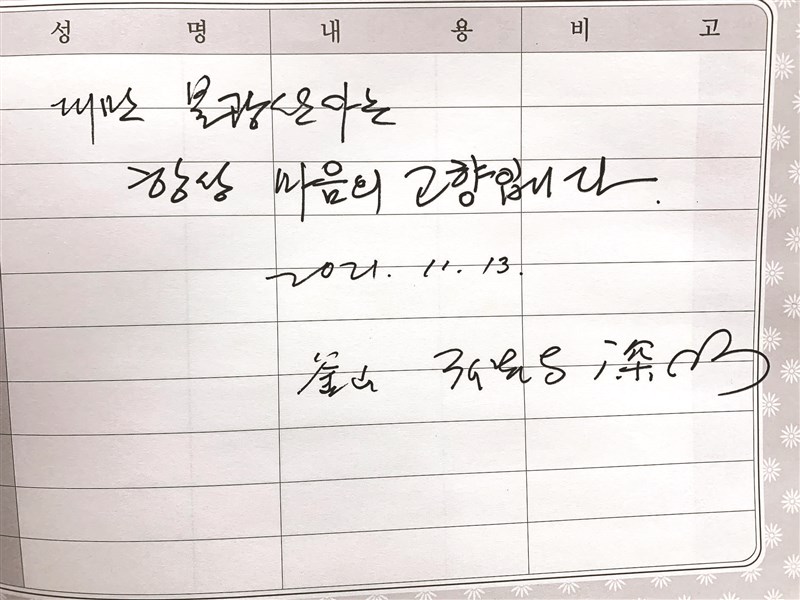 성 명 내 용 비 고
대만 불광산사는
항상 마음의 고향입니다.
2021. 11. 13.
釜山 深